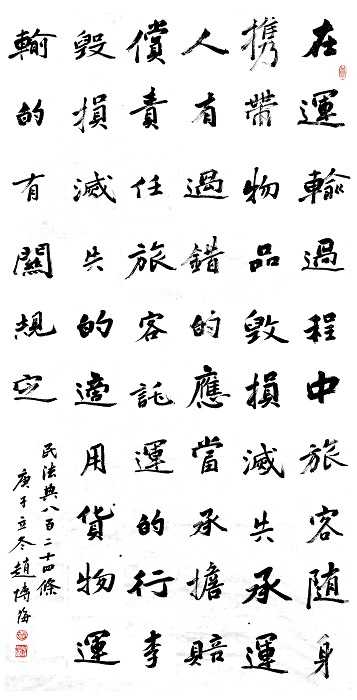 在運輸過程中旅客隨身
携帶物品毀損滅失承運
人有過錯的應當承擔賠
償責任旅客託運的行李
毀損滅失的適用貨物運
輸的有關規定
民法典八百二十四條
庚子立冬趙海